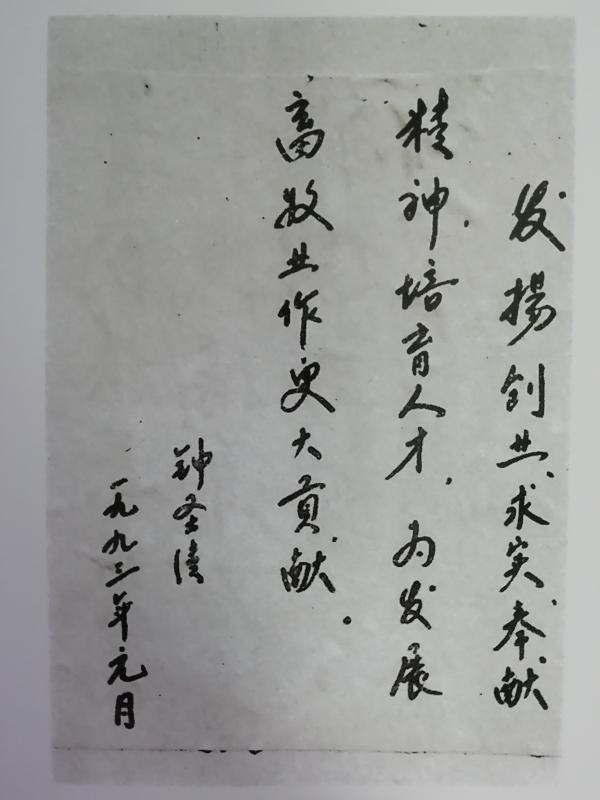 发揚创业、求实、奉献
精神,培育人才,为发展
畜牧业作更大贡献。
钟圣
一九九三年元月